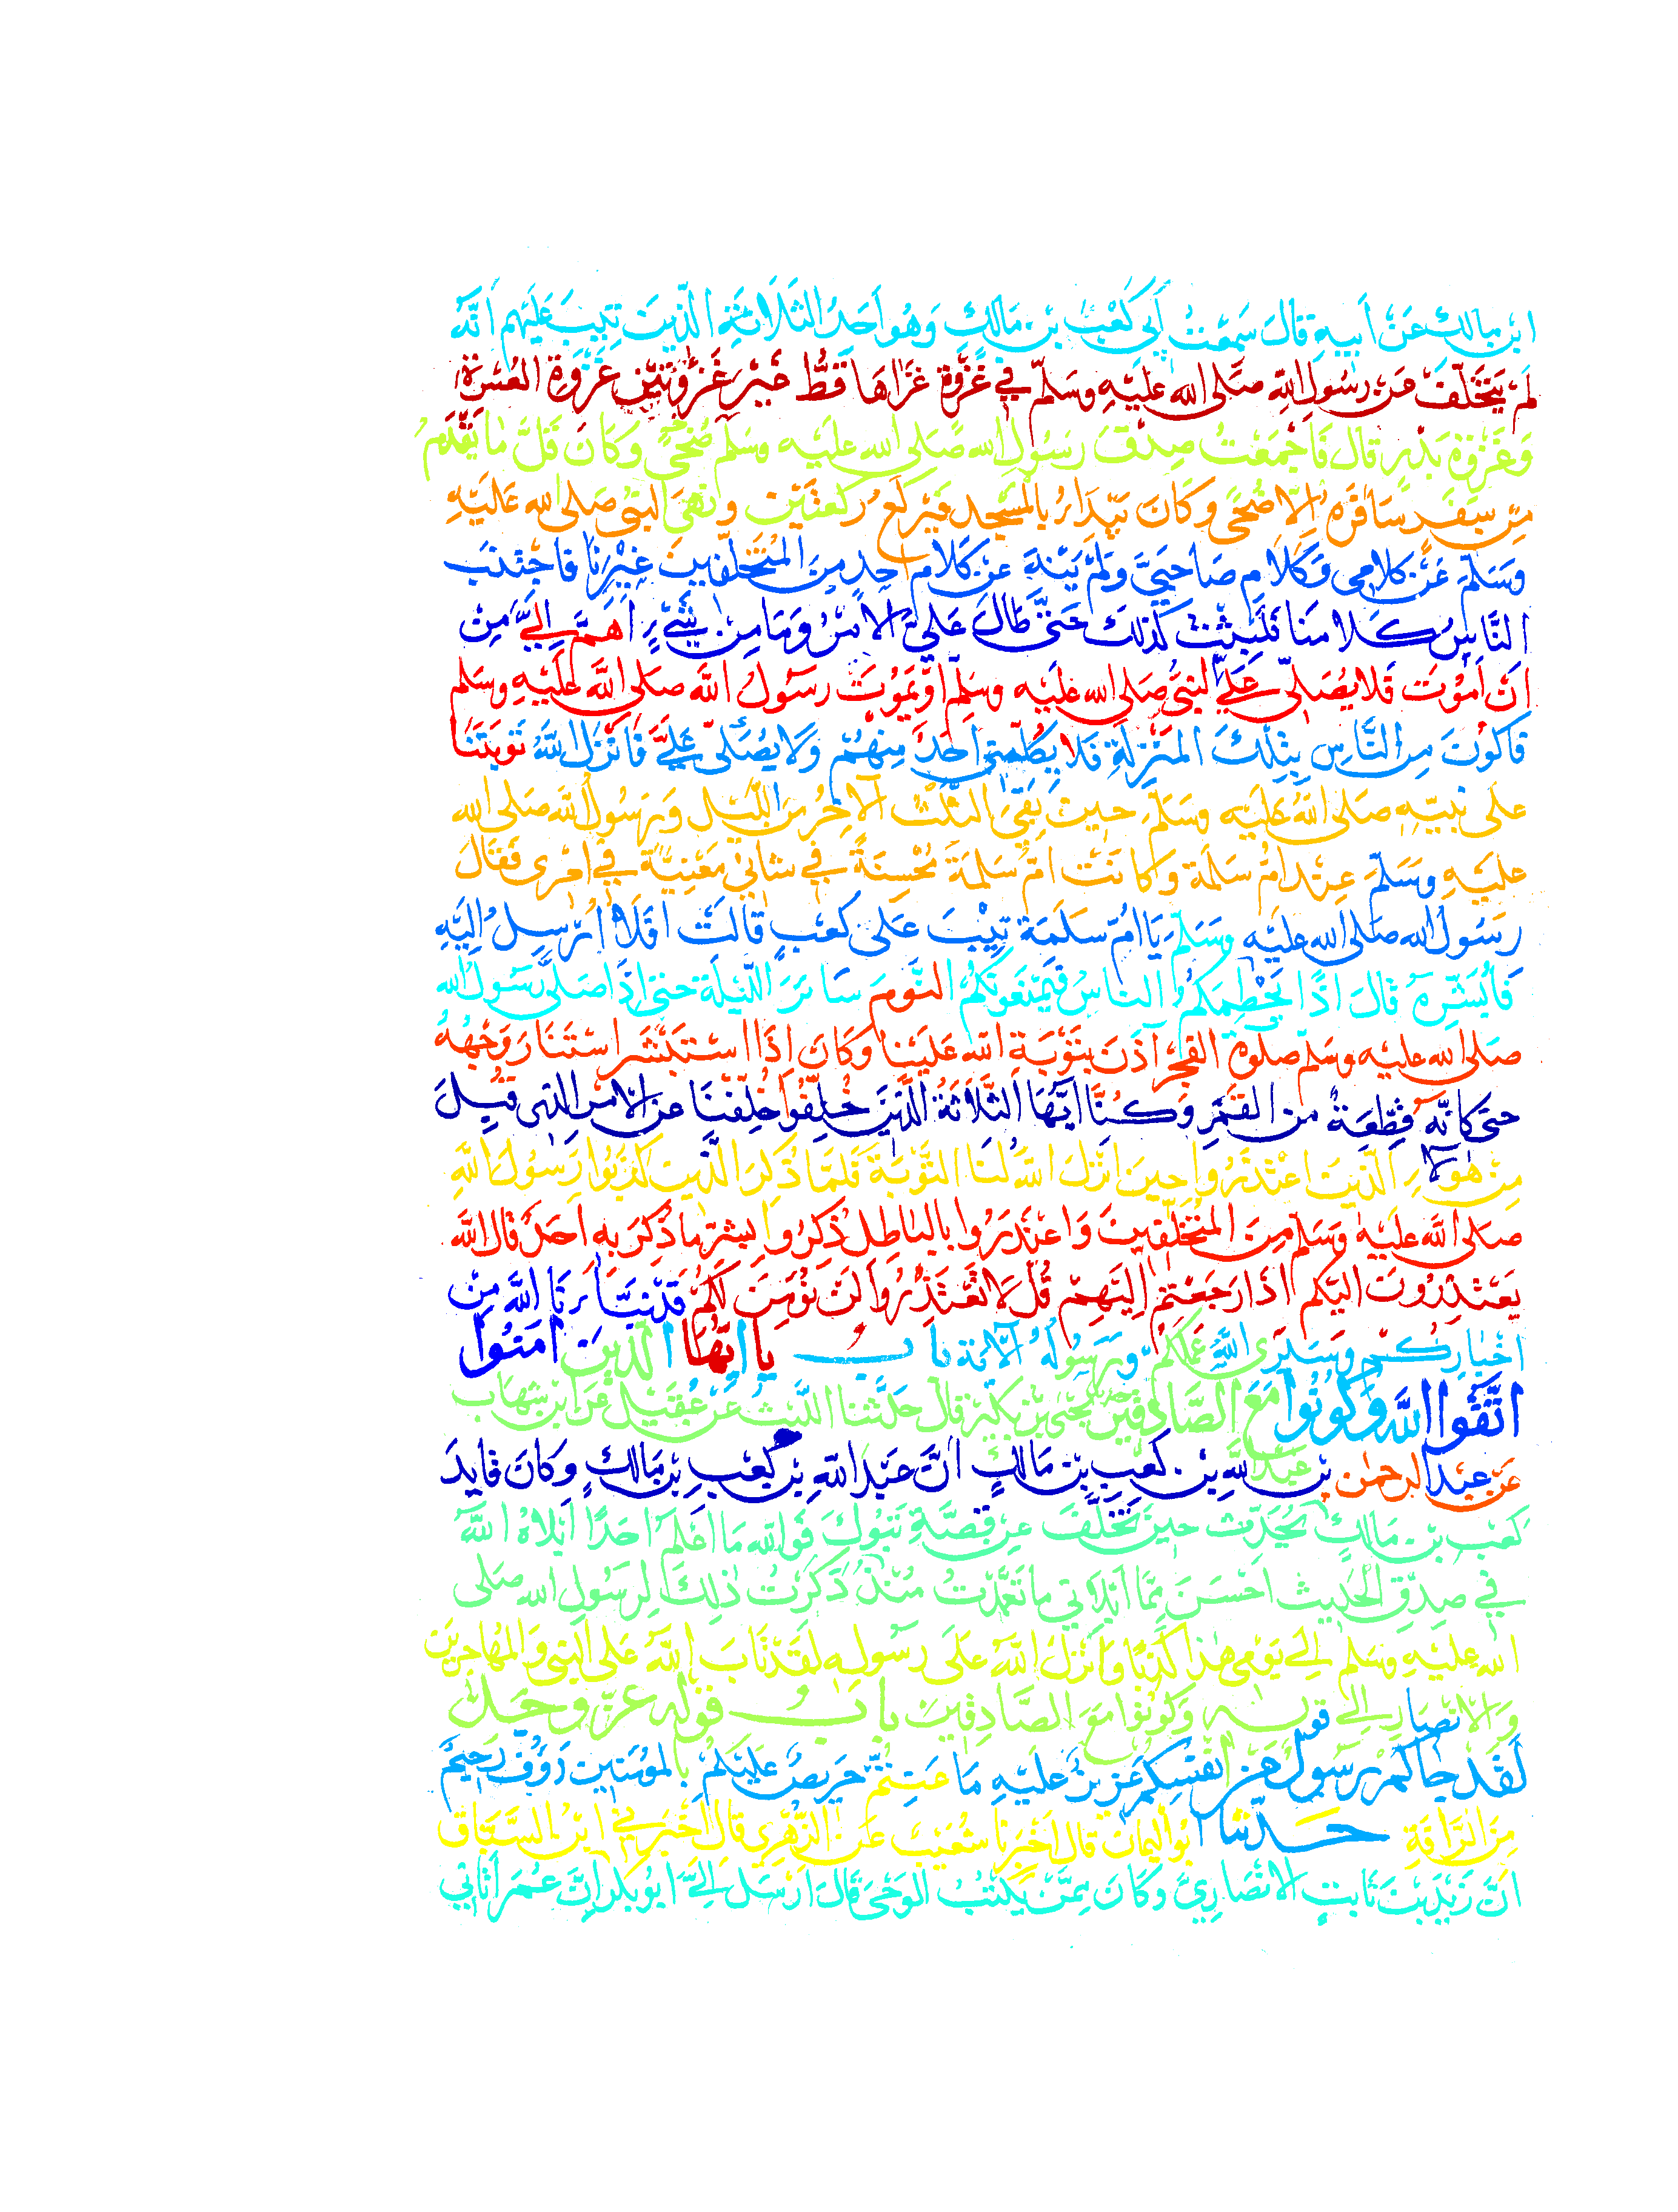 ابن مالك عَنْ اَبيهِ قالَ سَمِعْتُ أبى كَعْبَ بنَ مَالكٍ وَهُوَ اَحَدُ الثَلَاثَةِ الَّذينَ تِيبَ عَلَيْهِم اَنَّهُ
لَمْ يَتَخَلَّفْ عَنْ رسُولِ اللّهِ صلَّى الله عليْهِ وسَلّم في غَزْوَةٍ غَزَاهَا قَطُّ غَيْرَ غَزْوَتَيْنِ غَزْوَةِ العُسْرَةِ
وَغَزْوَةِ بَدْرٍ قَالَ فَاَجْمَعْتُ صِدْقَ رَسُولِ الله صَلى الله عليْه وسَلم ضُحًى وَكَانَ قَلَّ مَا يَقْدَمُ
مِنْ سَفَرٍ سَافَرَهُ اِلّا ضُحًى وَكَانَ يَبْدَاءُ بِالْمَسْجِدِ فَيَرْكَعُ رَكْعَتَيْنِ ونَهَى النبىُّ صَلى الله عَليْهِ
وَسَلّمَ عَنْ كَلَامى وَكَلَامِ صَاحِبَيَّ وَلَمْ يَنْهَ عَنْ كَلَامِ اَحدٍ مِنَ المُتَخَلّفينَ غَيْرِنَا فاجْتَنَبَ
النَّاسُ كَلَامنَا فَلَبِثْتُ كَذلكَ حَتّى طَالَ عَلَيَّ الْاَمْرُ وَمَا مِنْ شَيْءٍ اَهَمَّ اِلَيَّ مِنْ
اَنْ اَمُوْتَ فَلا يُصَلّى عَلَيَّ النبىُّ صَلى الله عَليْه وسَلّم اَوْ يَمُوْتَ رَسُولُ اللّه صَلى اللّه عَليْهِ وسَلم
فَاكُوْنَ مِنَ النَّاسِ بِتِلْكَ المَنْزِلَةِ فَلَا يُكَلّمُنى اَحَدٌ مِنْهُمْ وَلَا يُصَلّى عَلَيَّ فَانْزَلَ اللّهُ تَوْبَتَنَا
عَلى نَبِيّهِ صَلى اللّهُ عَليْه وسَلّمَ حينَ بَقِيَ الثُّلُثُ الْآخِرُ مِنَ اللّيْلِ وَرَسُولُ اللّه صَلى الله
عليْهِ وَسَلّمَ عِنْدَ امّ سَلَمَة وَكَانَتْ امُّ سَلَمَةَ مُحْسِنَةً في شَأنى مَعْنِيَّةً في امْرى فَقَالَ
رَسُولُ الله صَلى الله عليْه وسَلّمَ يَا اُمّ سَلَمَة تِيْبَ عَلى كَعْبٍ قالَتْ اَفَلَا اُرْسِلُ اِلَيْهِ
فَاُبَشّرهُ قَالَ اِذًا يَحْطِمَكُمُ النَاسُ فَيَمْنَعُونَكُمُ النَّوْمَ سَائرَ اللّيْلَة حَتى اِذَا صَلى رَسُولُ الله
صَلى الله عليْه وسَلم صلوةَ الفَجْر آذَنَ بِتَوْبَةِ اللّه عَلَيْنا وَكَانَ اِذَا اسْتَبْشَرَ اسْتَنَارَ وَجْهُهُ
حتى كَانّه قِطْعَةٌ من القَمَرِ وَكُنَّا اَيُّهَا الثّلَاثَةُ الّذينَ خُلِّفُوا خُلِّفْنَا عن الْاَمْر الذى قُبِلَ
مِنْ هٰؤلَاءِ الّذينَ اعْتَذَرُوا حِينَ اَنْزَلَ اللّهُ لَنَا التَّوْبَةَ فَلَمَّا ذُكِرَ الّذينَ كَذَبُوا رَسُولَ اللّهِ
صَلى اللّه عليْه وَسَلّم مِنَ المُتَخَلّفينَ وَاعْتَذَرُوا بالبَاطِلِ ذُكِرُوا بِشَرّ مَا ذُكِرَ بِهِ اَحَدٌ قَالَ اللّه
يَعْتَذِرُونَ اليْكم اذَا رَجَعْتُمْ اِليْهِمْ قُلْ لَا تَعْتَذِرُوا لَنْ نُؤْمِنَ لَكُمْ قَدْ نَبَّاَنَا اللّهُ مِنْ
اَخْبَارِكُمْ وَسَيَرَى اللّهُ عَمَلَكُمْ وَرَسُولُهُ الْآيَة بابُ يا ايُّهَا الّذينَ امَنُوا
اتَّقُوا اللّهَ وَكُونُوا مَعَ الصَّادقينَ يَحْيَى بْنُ بُكَيْر قال حَدَّثنا اللّيْثُ عَنْ عُقَيْلٍ عَنْ ابْنِ شِهَابٍ
عَنْ عَبْدِ الرحمٰن بْنِ عَبْدِ اللّهِ بْنِ كَعْبِ بْنِ مَالكٍ اَنَّ عَبْدَ اللّهِ بْنَ كَعْبِ بْنِ مَالكٍ وَكَانَ قَايدَ
كَعْبِ بْنِ مَالكٍ يُحَدِّثُ حينَ تَخَلَّفَ عَنْ قِصَّةِ تَبُوكَ فَوَاللّه مَا اَعْلَمُ اَحَدًا اَبْلَاهُ اللّهُ
في صِدْقِ الحَديثِ اَحْسَنَ مِمَّا اَبْلَانى مَا تَعَمَّدْتُ مُنْذُ ذَكَرْتُ ذٰلِكَ لِرَسُولِ الله صَلى
الله عَليْهِ وَسَلم اِلَى يَوْمى هٰذَا كَذِبًا وَاَنْزَلَ اللّهُ عَلَى رَسُولِه لَقَدْ تَابَ اللّهُ عَلى النّبى وَالمُهَاجِرينَ
وَالْانْصَارِ اِلَى قولِهِ وَكُونُوا مَعَ الصَّادِقينَ بابُ قَوْلِهِ عَزّ وجَلّ
لَقَد جَاكُمْ رَسُولٌ مِنْ اَنْفُسِكُمْ عَزيزٌ عَليْهِ مَا عَنِتُّمْ حَريصٌ عَلَيْكُمْ بالْمُؤمنينَ رَؤُفٌ رَحِيمٌ
مِنَ الرَّأفَةِ حَدّثَنَا ابُو اليمَان قال اخْبَرنا شُعَيْبٌ عَن الزُّهْرى قالَ اخْبَرَنى ابْنُ السَّبَّاق
اَنَّ زَيْدَ بْنَ ثَابتٍ الْانْصَارِيَّ وَكَانَ مِمَّنْ يَكْتُبُ الوَحْىَ قَالَ اَرْسَلَ اِلَىَّ ابُو بكرٍ اِنَّ عُمَرَ اَتَانى